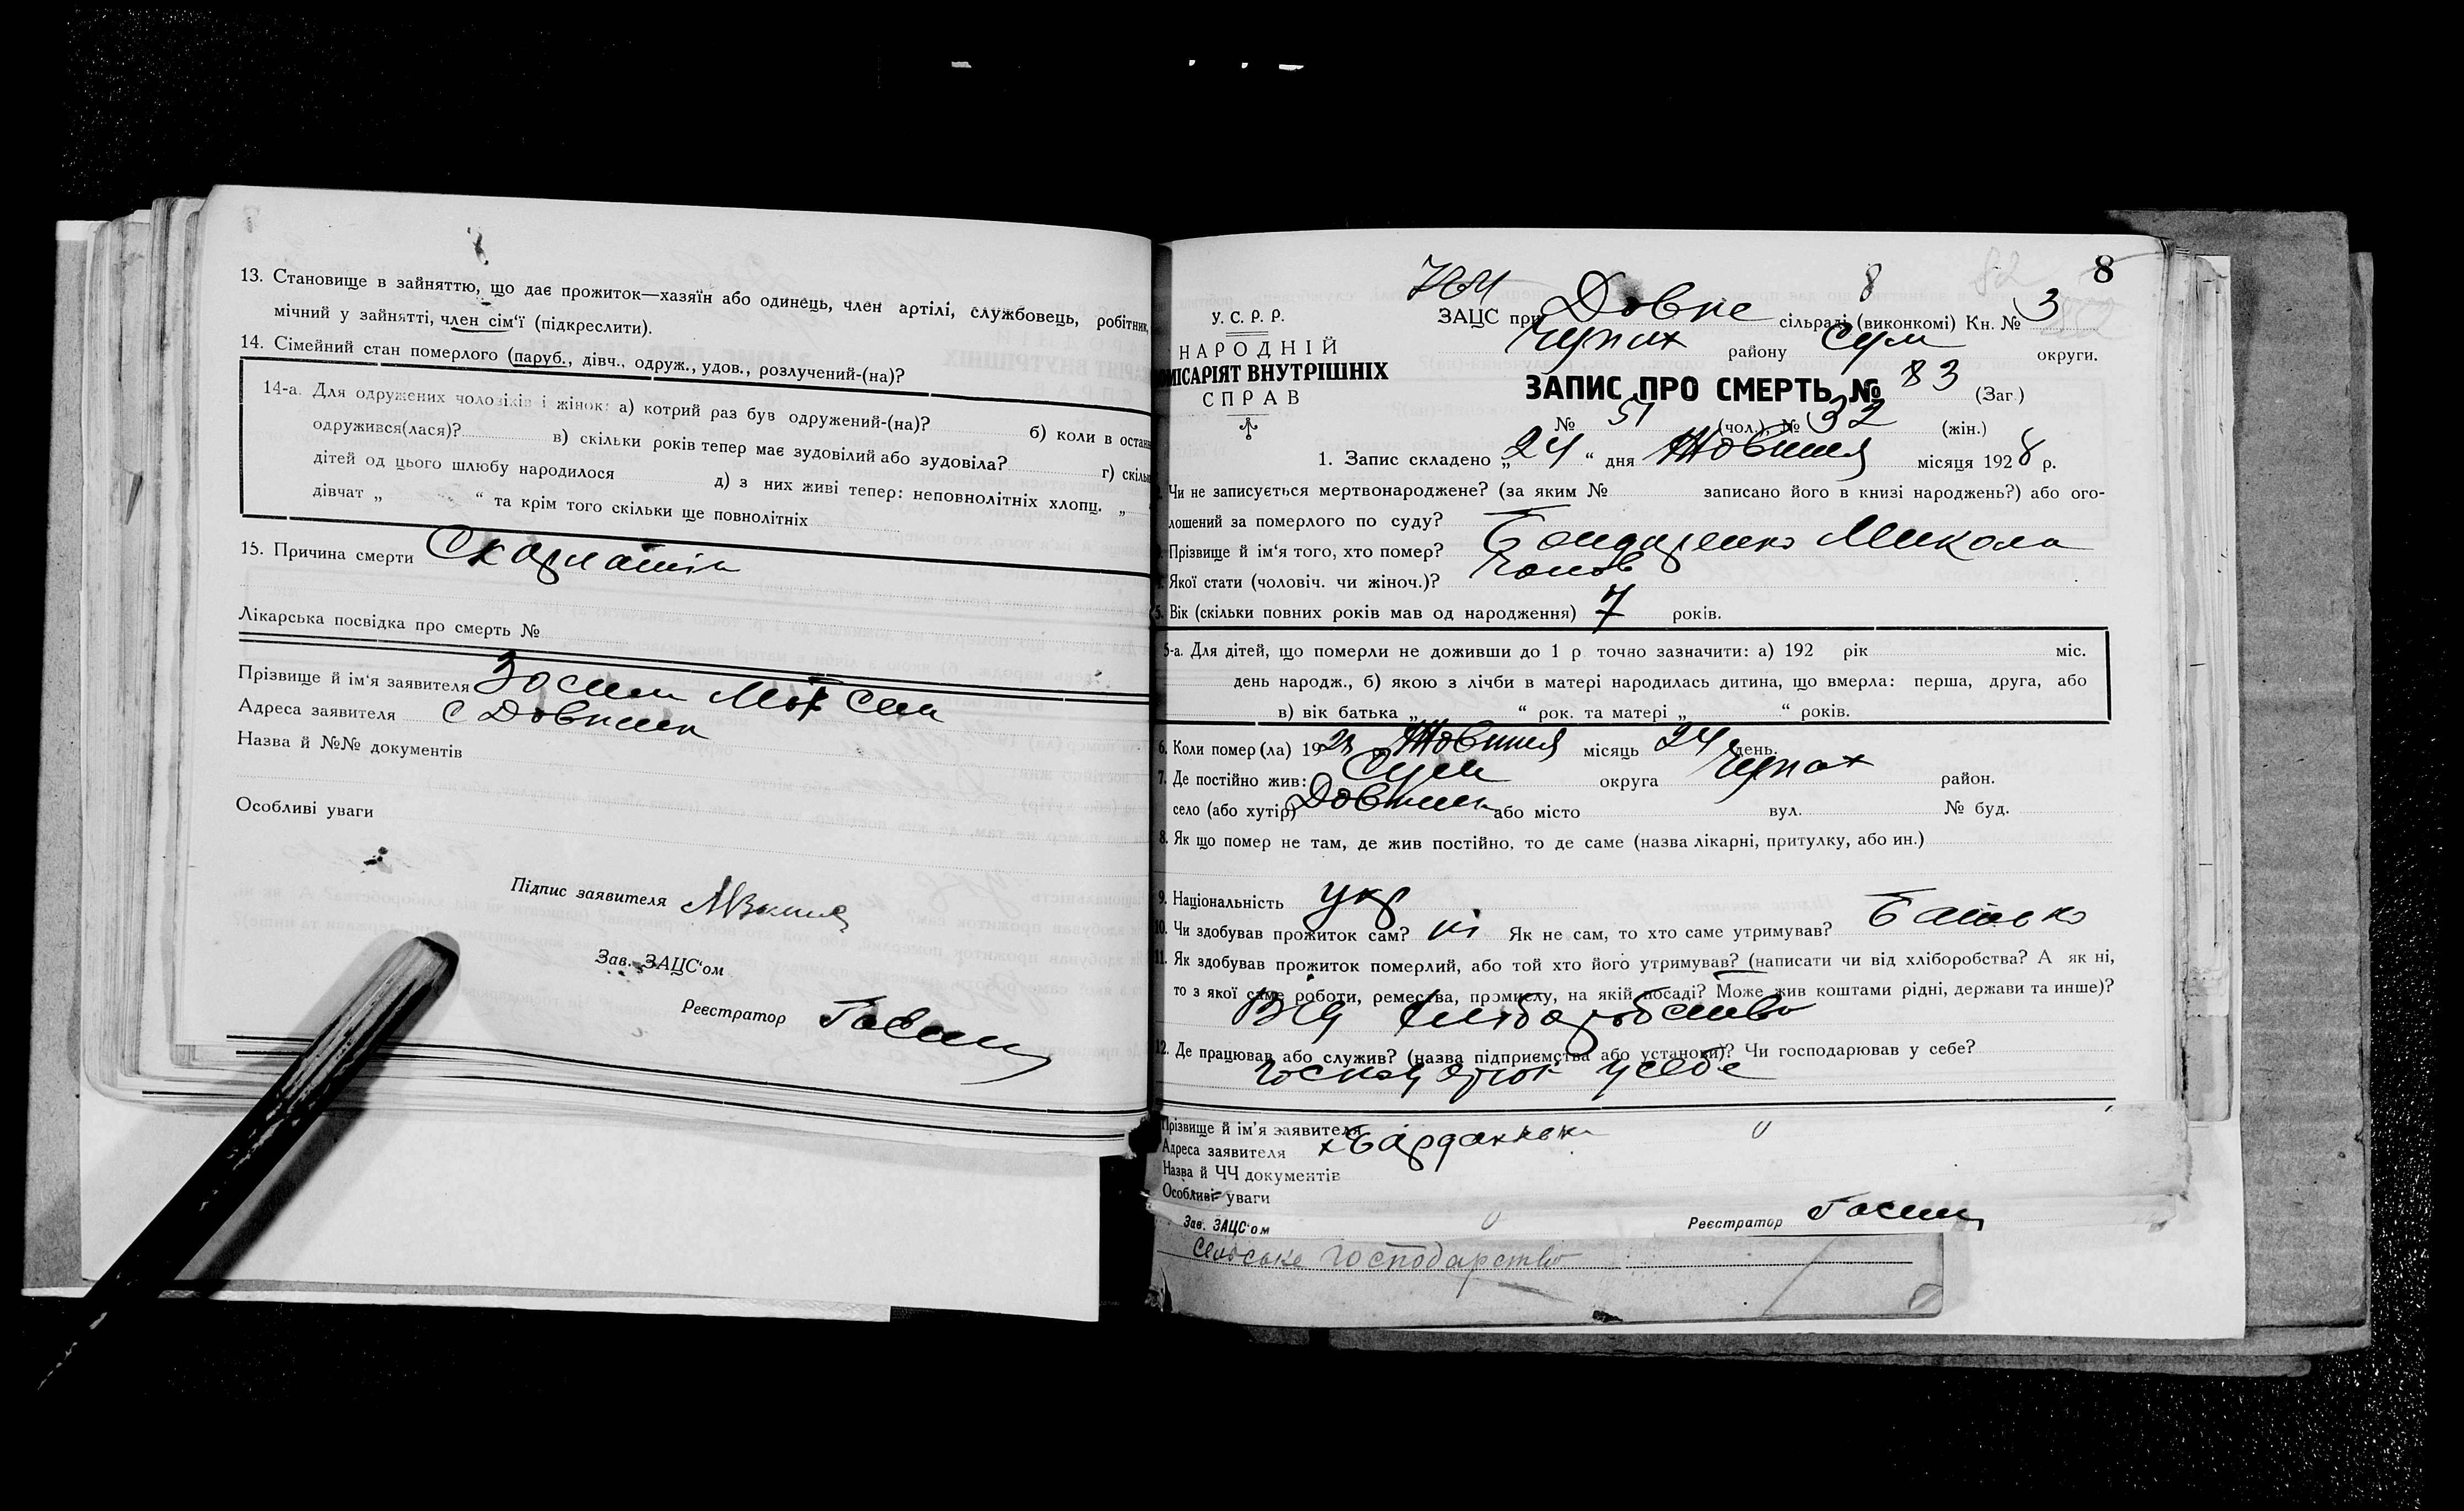 13. Становище в зайняттю, що дає прожиток—хазяїн або одинець, член артілі, службовець, робітник,
мічний у зайнятті, член сім'ї (підкреслити).
14. Сімейний стан померлого (паруб., дівч., одруж., удов., розлучений-(на)?
14-а. Для одружених чоловіків і жінок: а) котрий раз був одружений-(на)? б) коли в остан
одружився(лася)? в) скільки років тепер має зудовілий або зудовіла? г) скіль
дітей од цього шлюбу народилося д) з них живі тепер: неповнолітніх хлопц. „
дівчат „ “ та крім того скільки ще повнолітніх
15. Причина смерти Скарлатін
Лікарська посвідка про смерть №
Прізвище й ім'я заявителя
Адреса заявителя С
Назва й №№ документів
Особливі уваги
Підпис заявителя
Зав. ЗАЦС'ом
Реєстратор
8
8
ЗАЦС при сільраді (виконкомі) Кн. № 3
Чупах району Сум округи.
У. С. Р. Р.
НАРОДНІЙ
ОМІСАРІЯТ ВНУТРІШНІХ
СПРАВ
ЗАПИС ПРО СМЕРТЬ № 83 (Заг.)
№ 51 (чол.), № 32 (жін.)
1. Запис складено „24“ дня Жовтня місяця 1928 р.
Чи не записується мертвонароджене? (за яким № записано його в книзі народжень?) або ого-
лошений за померлого по суду?
Прізвище й ім'я того, хто помер? Бондаренко Микола
Якої стати (чоловіч. чи жіноч.)? Чолов
5. Вік (скільки повних років мав од народження) 7 років.
5-а. Для дітей, що померли не доживши до 1 р точно зазначити: а) 192 рік міс.
день народж., б) якою з лічби в матері народилась дитина, що вмерла: перша, друга, або
в) вік батька „ “ рок. та матері „ “ років.
6. Коли помер(ла) 1928 Жовтня місяць 24 день.
7. Де постійно жив: Сум округа Чупах район.
село (або хутір) або місто вул. № буд.
8. Як що помер не там, де жив постійно, то де саме (назва лікарні, притулку, або ин.)
9. Національність укр
10. Чи здобував прожиток сам? ні Як не сам, то хто саме утримував? Батько
11. Як здобував прожиток померлий, або той хто його утримував? (написати чи від хліборобства? А як ні,
то з якої саме роботи, ремества, промислу, на якій посаді? Може жив коштами рідні, держави та инше)?
Від хліборобства
12. Де працював або служив? (назва підприємства або установи)? Чи господарював у себе?
у себе
Прізвище й ім'я заявителя
Адреса заявителя
Назва й ЧЧ документів
Особливі уваги
Зав. ЗАЦС'ом Реєстратор
Сільське господарство